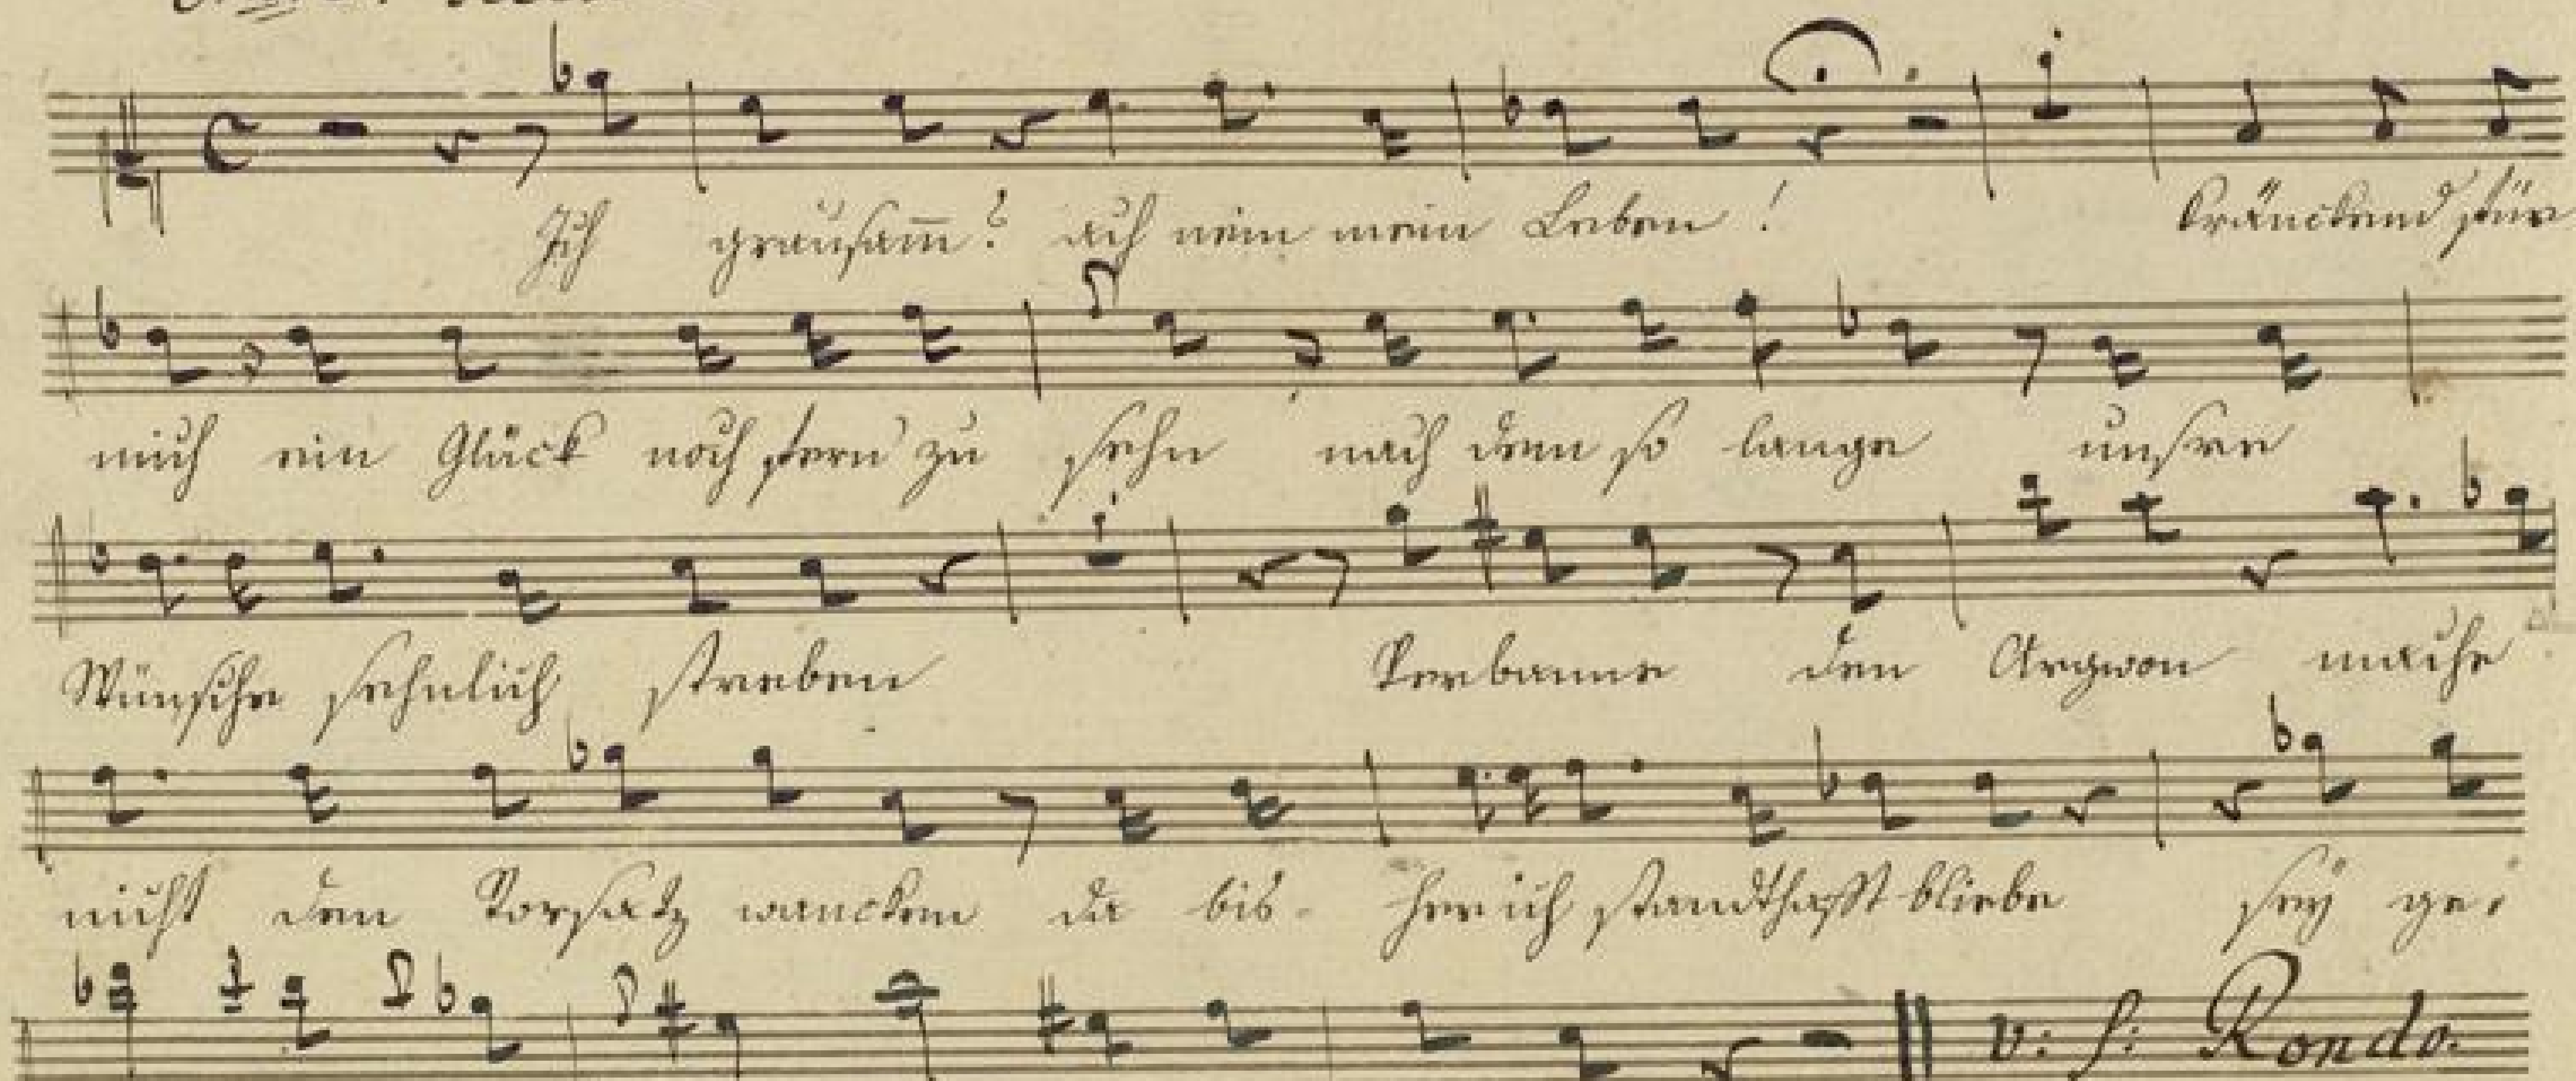 Ich grausam̅? ach nein mein Leben!
kränckend für
mich ein Glück noch fern zu sehn nach dem so lange unsre
Wünsche sehnlich streben Verbanne den Argwon mache
nicht den Vorsatz wancken da bis- her ich standthafft bliebe sey ge-
v: s: Rondo.